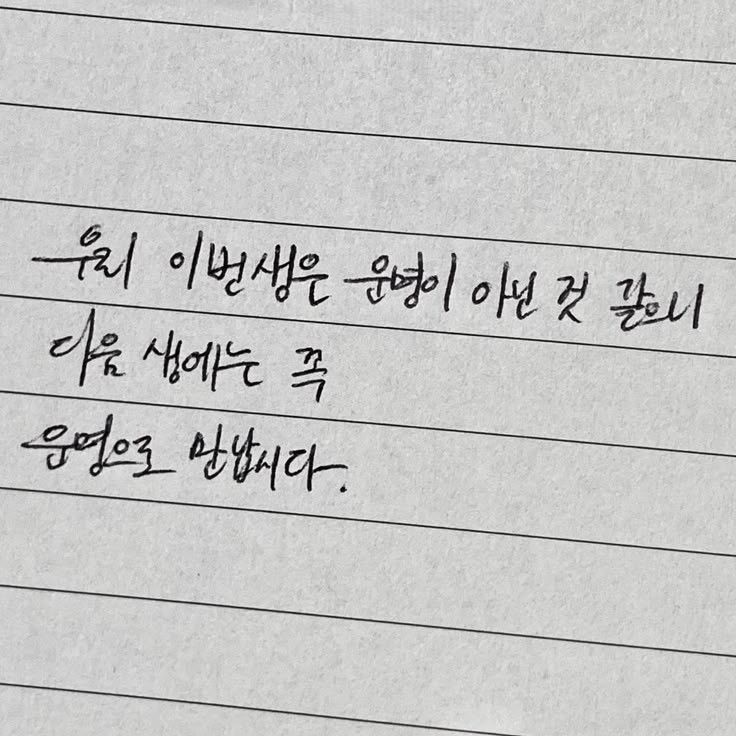 우리 이번생은 운명이 아닌 것 같으니
다음 생에는 꼭
운명으로 만납시다.